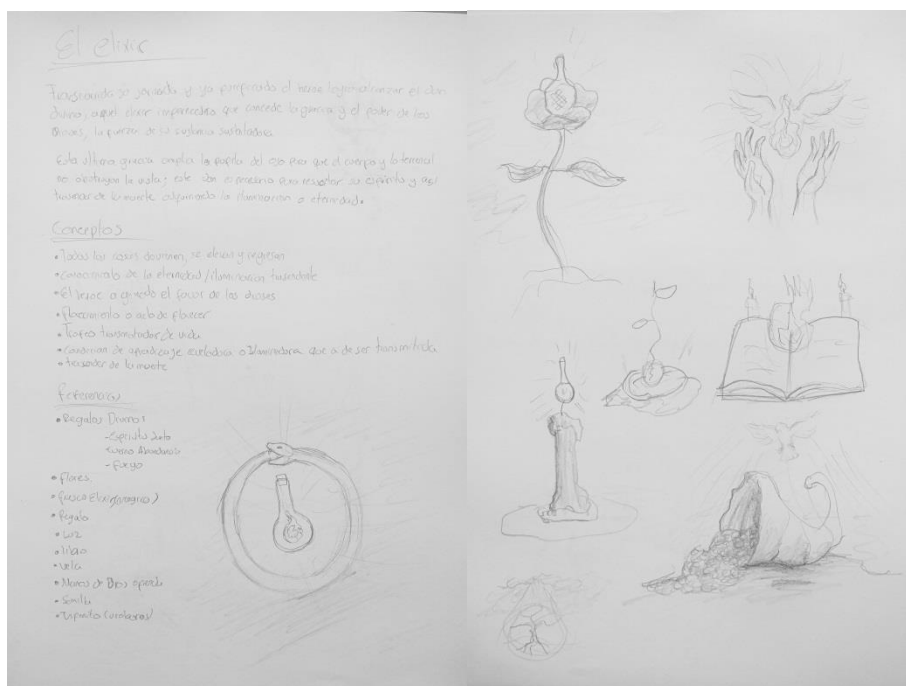 El elixir
Trascurrida su jornada y ya purificado el héroe logrará alcanzar el don
divino, aquel elixir imperecedero que concede la gracia y el poder de los
dioses, la fuerza de la sustancia sustentadora.
Esta última gracia amplía la pupila del ojo para que el cuerpo y lo terrenal
no obstruyan la vista; este don es necesario para resucitar su espíritu y así
de la muerte adquiriendo la iluminación o eternidad.
Conceptos
• Todas las cosas se elevan y regresan
• Conocimiento de la eternidad/iluminación
• El héroe a ganado el favor de los dioses
• Florecimiento o acto de florecer
• Trofeo transmutador de vida
• Condición de aprendizaje reveladora o iluminadora que a de ser transmitida
• trascender de la muerte
Referencias
• Regalos Divinos
- Espíritu Santo
- Cuerno Abundancia
- Fuego
• flores.
• frasco Elixir
• Regalo
• Luz
• libro
• vela
• Manos de Dios
• Semilla
• Espíritu